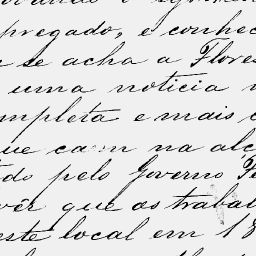 pregado, e conhec
se acha a Flores
uma noticia
mpleta e mais
que caem na alc
do pelo Governo
vêr que os trabal
este local em 18